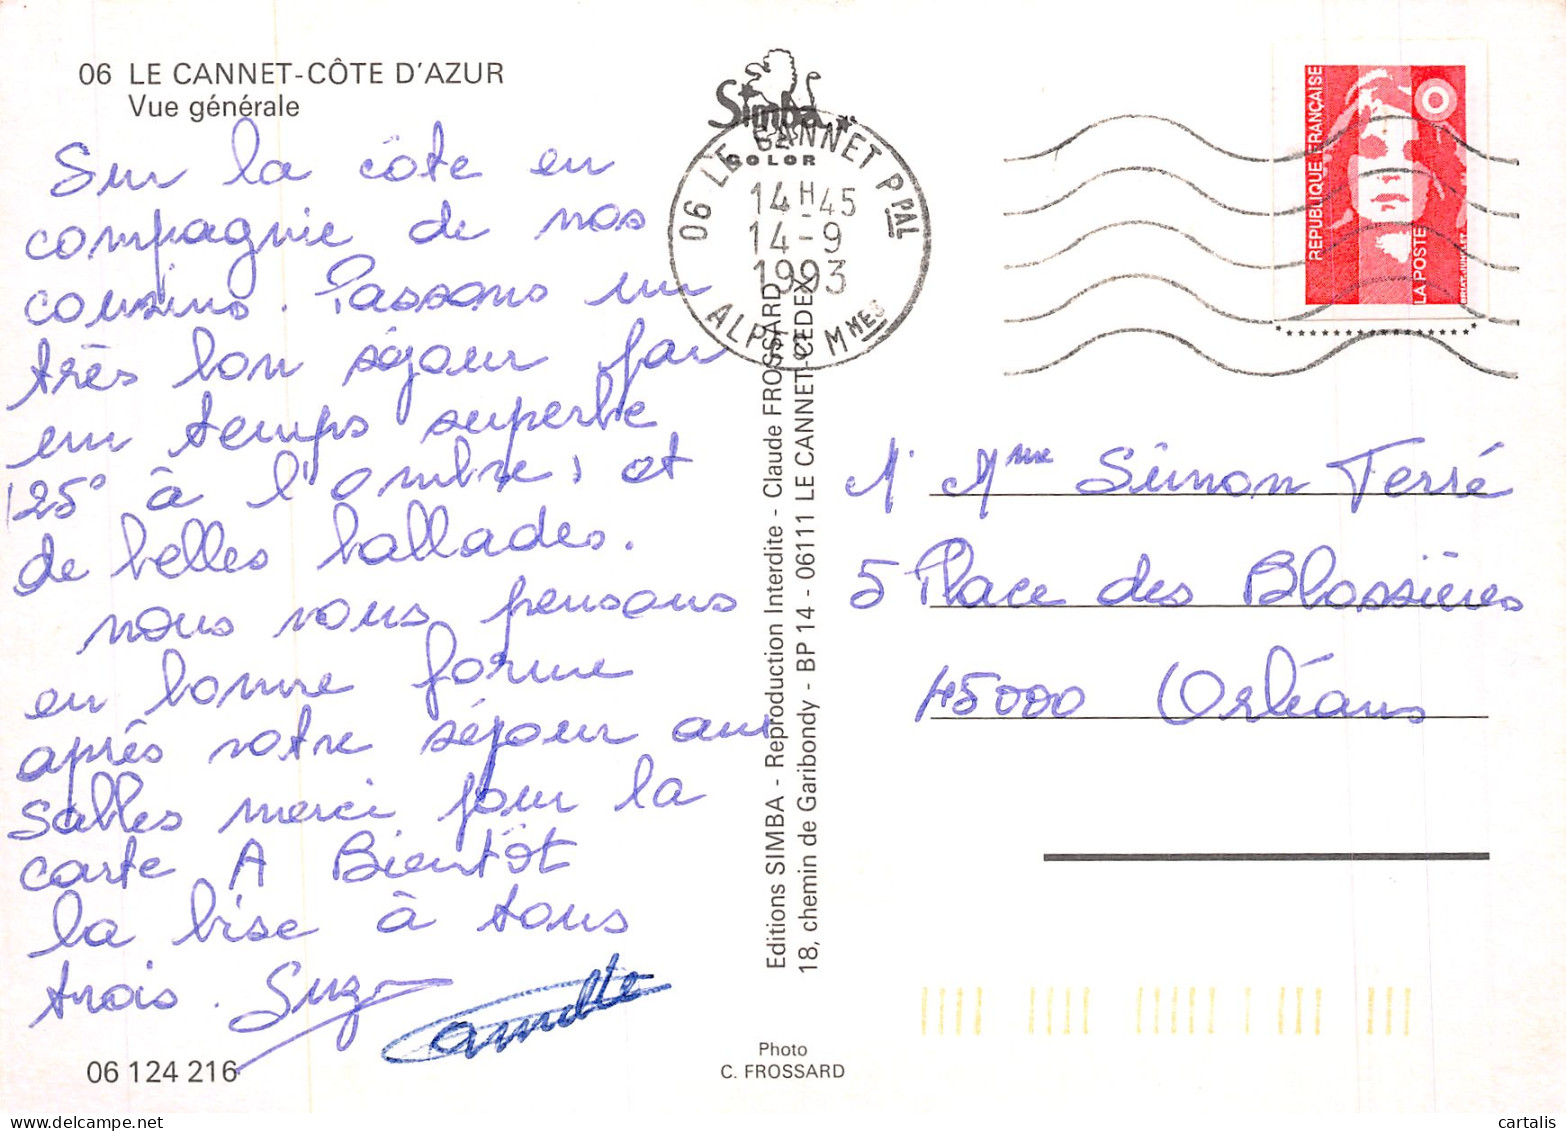 06 LE CANNET-CÔTE D'AZUR
Vue générale
Sur la côte en
compagnie de nos
cousins. Passons un
très bon séjour par
un temps superbe
(25° à l'ombre) et
de belles ballades.
nous vous pensons
en bonne forme
après votre séjour aux
Sables merci pour la
carte A Bientôt
la bise à tous
trois. Suz
06 124 216
Simba
COLOR
06 LE CANNET PPAL
14H45
14-9
1993
ALPES MMES
Editions SIMBA - Reproduction Interdite - Claude FROSSARD
18, chemin de Garibondy - BP 14 - 06111 LE CANNET-CEDEX
Photo
C. FROSSARD
REPUBLIQUE FRANÇAISE
LA POSTE
M. Mme Simon Terré
5 Place des Blossières
45000 Orléans
cartalis